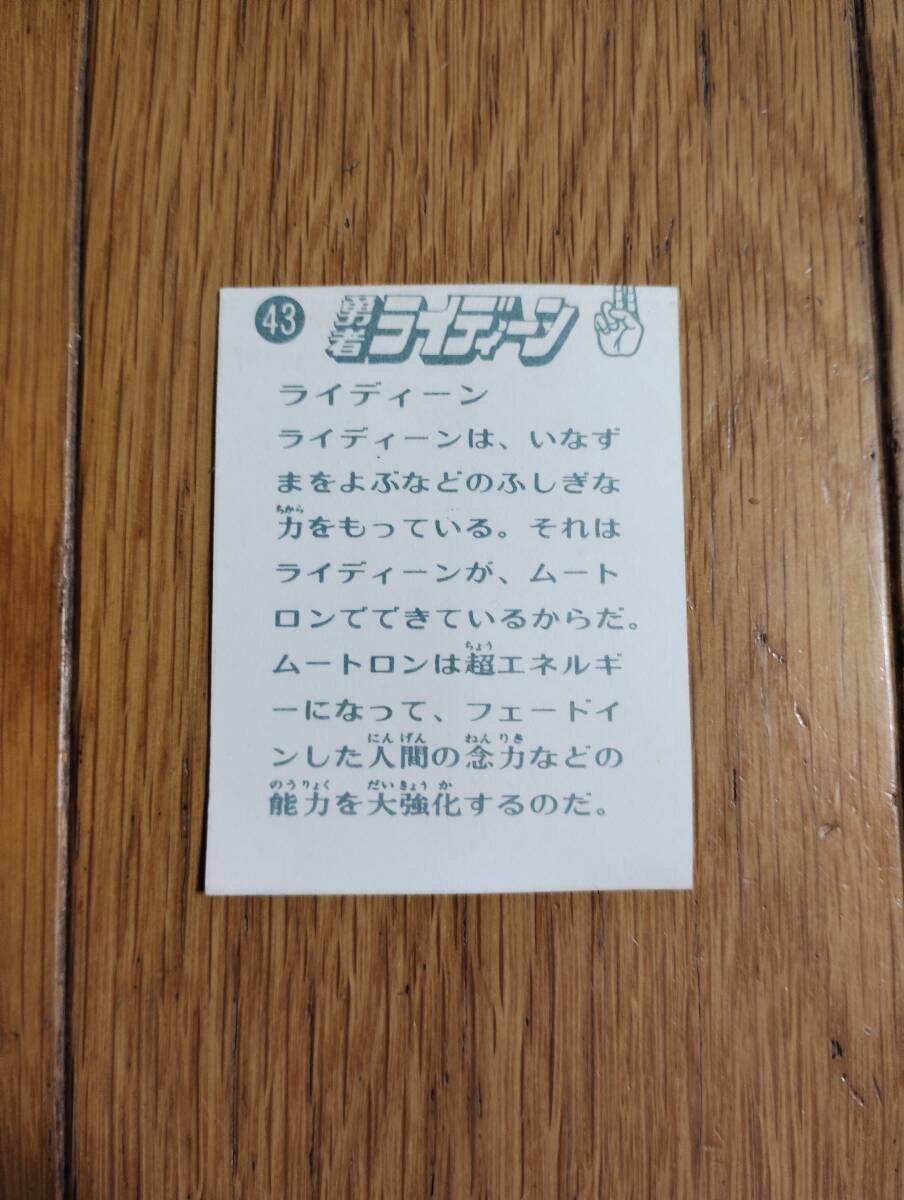 43 勇者ライディーン
ライディーン
ライディーンは、いなず
まをよぶなどのふしぎな
力をもっている。それは
ライディーンが、ムート
ロンでできているからだ。
ムートロンは超エネルギ
ーになって、フェードイ
ンした人間の念力などの
能力を大強化するのだ。